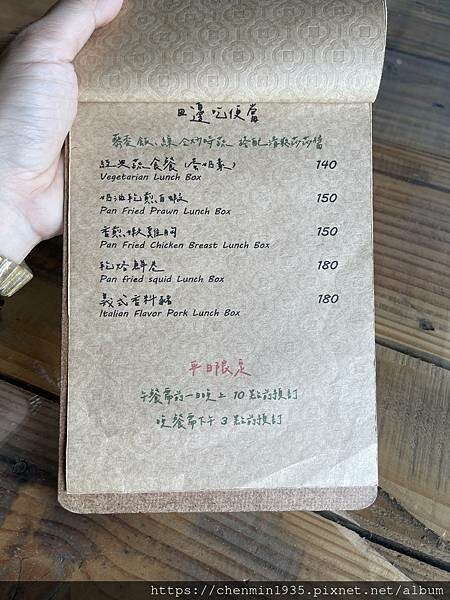 田邊吃便當
藜麥飯、綠金炒時蔬 搭配清爽莎莎醬
經典蔬食餐(蛋奶素) 140
Vegetarian Lunch Box
奶油乾煎白蝦 150
Pan Fried Prawn Lunch Box
香煎嫩雞胸 150
Pan Fried Chicken Breast Lunch Box
乾烙鮮卷 180
Pan fried squid Lunch Box
義式香料豬 180
Italian Flavor Pork Lunch Box
平日限定
午餐需前一日晚上10點前預訂
晚餐需下午3點前預訂
https://chenmin1935.pixnet.net/album